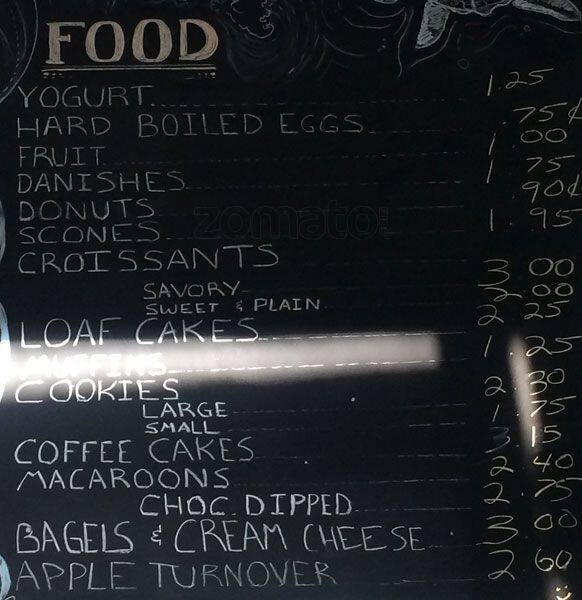 FOOD
YOGURT 1.25
HARD BOILED EGGS .75¢
FRUIT 1 00
DANISHES 1 75
DONUTS 90¢
SCONES 1.95
CROISSANTS
SAVORY 3 00
SWEET & PLAIN 2 00
LOAF CAKES 2 25
MUFFINS 1.25
COOKIES
LARGE 2
SMALL 1 75
COFFEE CAKES 15
MACAROONS 2 40
CHOC DIPPED 2.75
BAGELS & CREAM CHEESE 3 00
APPLE TURNOVER 2 60
zomato